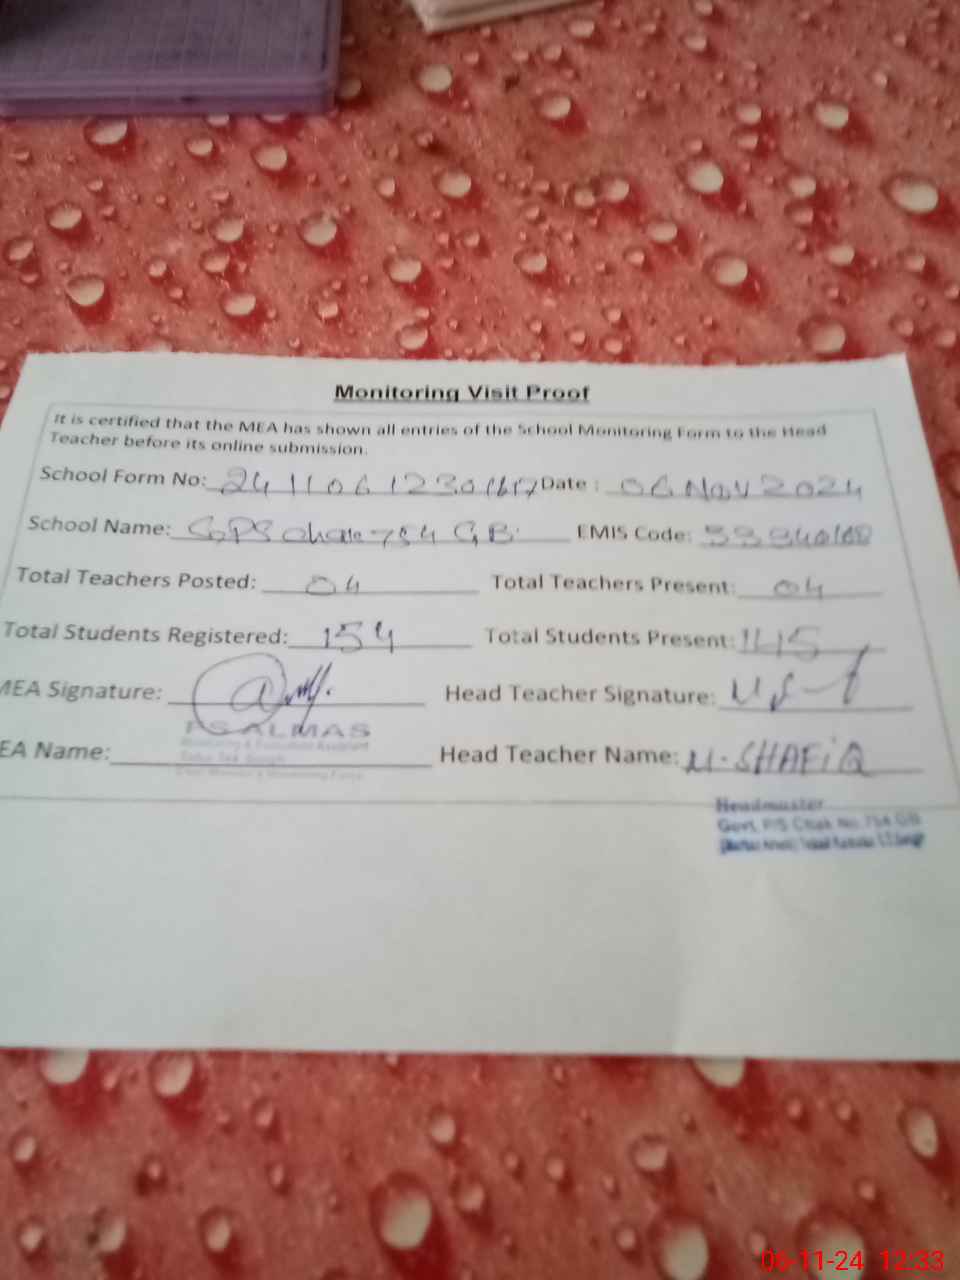 Monitoring Visit Proof
It is certified that the MEA has shown all entries of the School Monitoring Form to the Head
Teacher before its online submission.
School Form No: Date : 06 Nov 2024
School Name: GPS Chak 754 GB. EMIS Code:
Total Teachers Posted: 04 Total Teachers Present: 04
Total Students Registered: 154 Total Students Present: 145
MEA Signature: Head Teacher Signature:
ALMAS
Monitoring & Evaluation Assistant
EA Name: Head Teacher Name: M. SHAFiQ
Headmaster
Govt. P/S Chak No. 754 GB
06-11-24 12:33